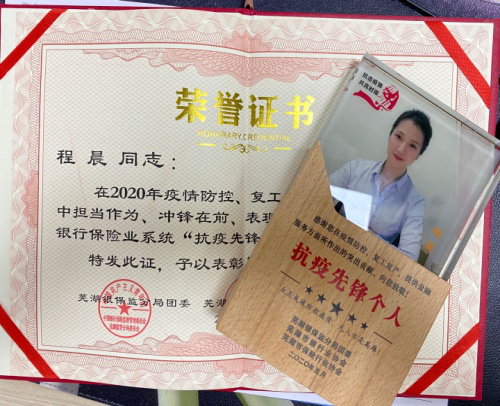 荣誉证书
HONORARY CREDENTIAL
程晨 同志：
在2020年疫情防控、复工
中担当作为、冲锋在前、表现
银行保险业系统“抗疫先锋
特发此证，予以表彰
芜湖银保监分局团委 芜湖
抗击疫情
感谢您在疫情防控、复工复产、提供金融
服务方面所作的突出贡献，向您致敬！
抗疫先锋个人
芜湖银保监分局团委
芜湖市银行业协会
芜湖市保险行业协会
二〇二〇年五月